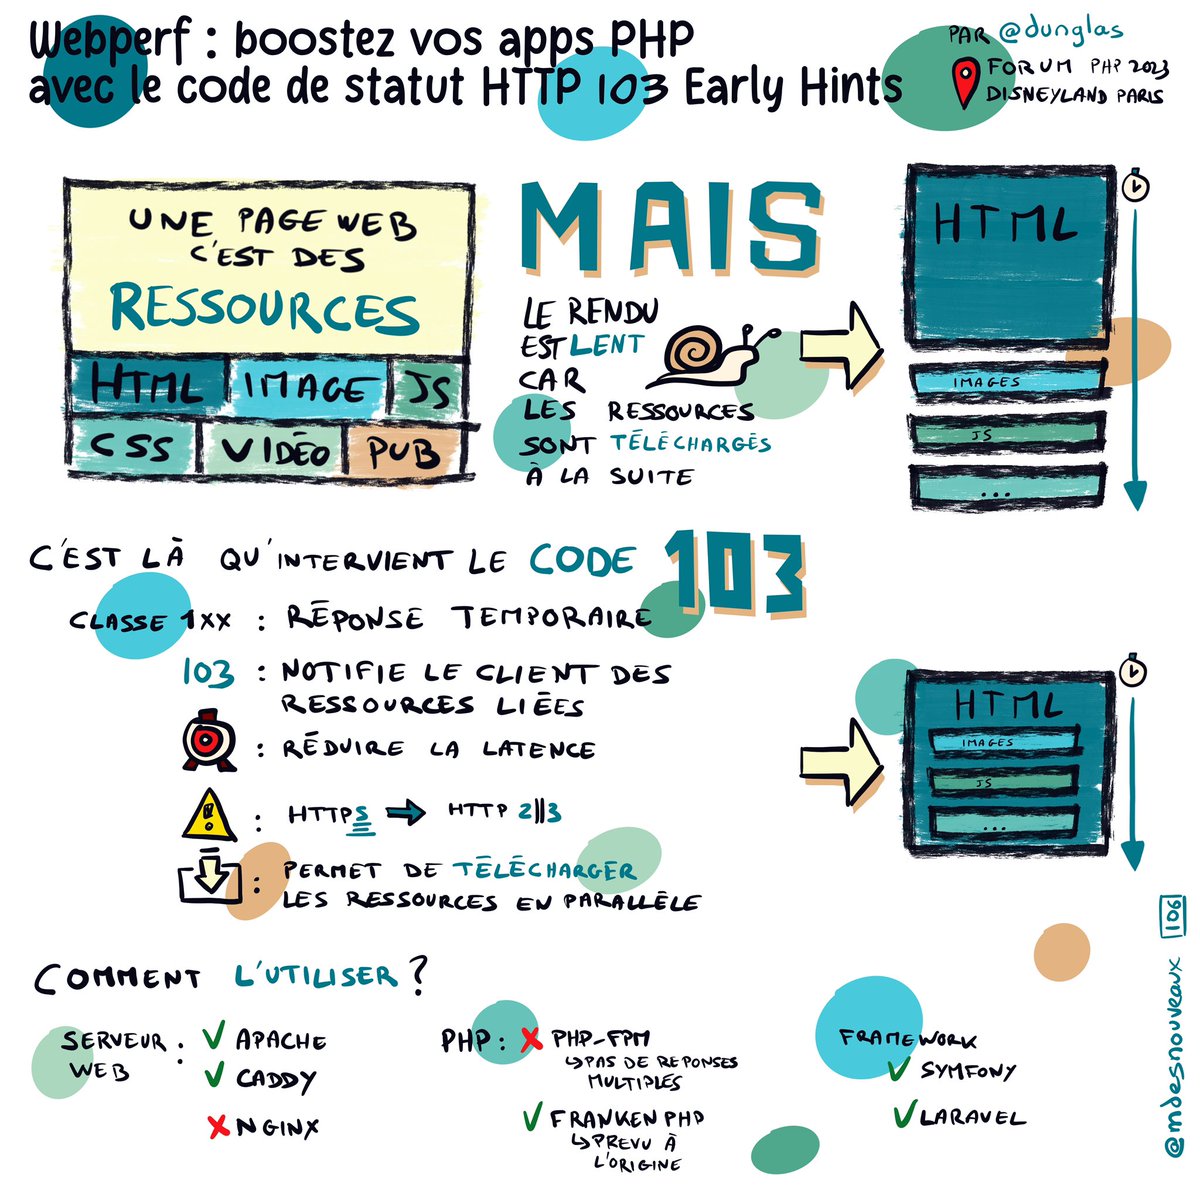 Webperf : boostez vos apps PHP
avec le code de statut HTTP 103 Early Hints
PAR @dunglas
FORUM PHP 2023
DISNEYLAND PARIS
UNE PAGE WEB
C'EST DES
RESSOURCES
HTML IMAGE JS
CSS VIDÉO PUB
MAIS
LE RENDU
EST LENT
CAR
LES RESSOURCES
SONT TÉLÉCHARGÉS
À LA SUITE
HTML
IMAGES
JS
...
C'EST LÀ QU'INTERVIENT LE CODE 103
CLASSE 1XX : RÉPONSE TEMPORAIRE
103 : NOTIFIE LE CLIENT DES
RESSOURCES LIÉES
: RÉDUIRE LA LATENCE
!! : HTTPS → HTTP 2||3
: PERMET DE TÉLÉCHARGER
LES RESSOURCES EN PARALLÈLE
HTML
IMAGES
JS
...
COMMENT L'UTILISER ?
SERVEUR WEB : ✓ APACHE
✓ CADDY
✗ NGINX
PHP : ✗ PHP-FPM
↳ PAS DE REPONSES
MULTIPLES
✓ FRANKEN PHP
↳ PREVU À
L'ORIGINE
FRAMEWORK
✓ SYMFONY
✓ LARAVEL
@mdesnouveaux 106